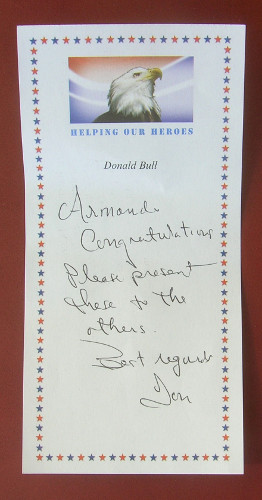 HELPING OUR HEROES
Donald Bull
Armando
Congratulations
Please present
these to the
others.
Best regards
Don